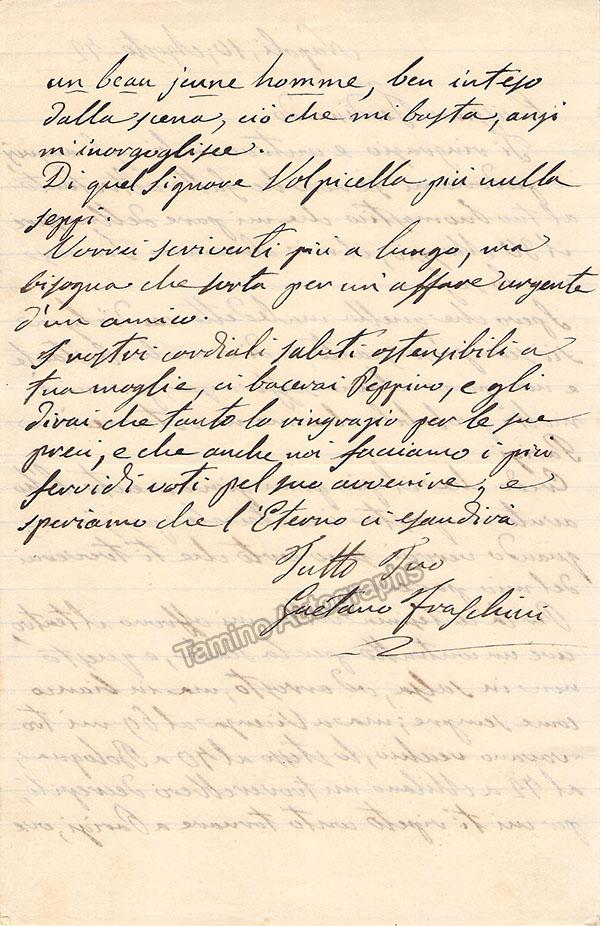 un beau jeune homme, ben inteso
dalla scena, ciò che mi basta, anzi
m'inorgoglisce.
Di quel Signore Volpicella più nulla
seppi.
Vorrei scriverti più a lungo, ma
bisogna che sorta per un'affare urgente
d'un amico.
I nostri cordiali saluti ostensibili a
tua moglie, ci bacerai Peppino, e gli
dirai che tanto lo ringrazio per le sue
preci, e che anche noi facciamo i più
fervidi voti pel suo avvenire, e
speriamo che l'Eterno ci esaudirà
Tutto Tuo
Gaetano Fraschini
Tamino Autographs